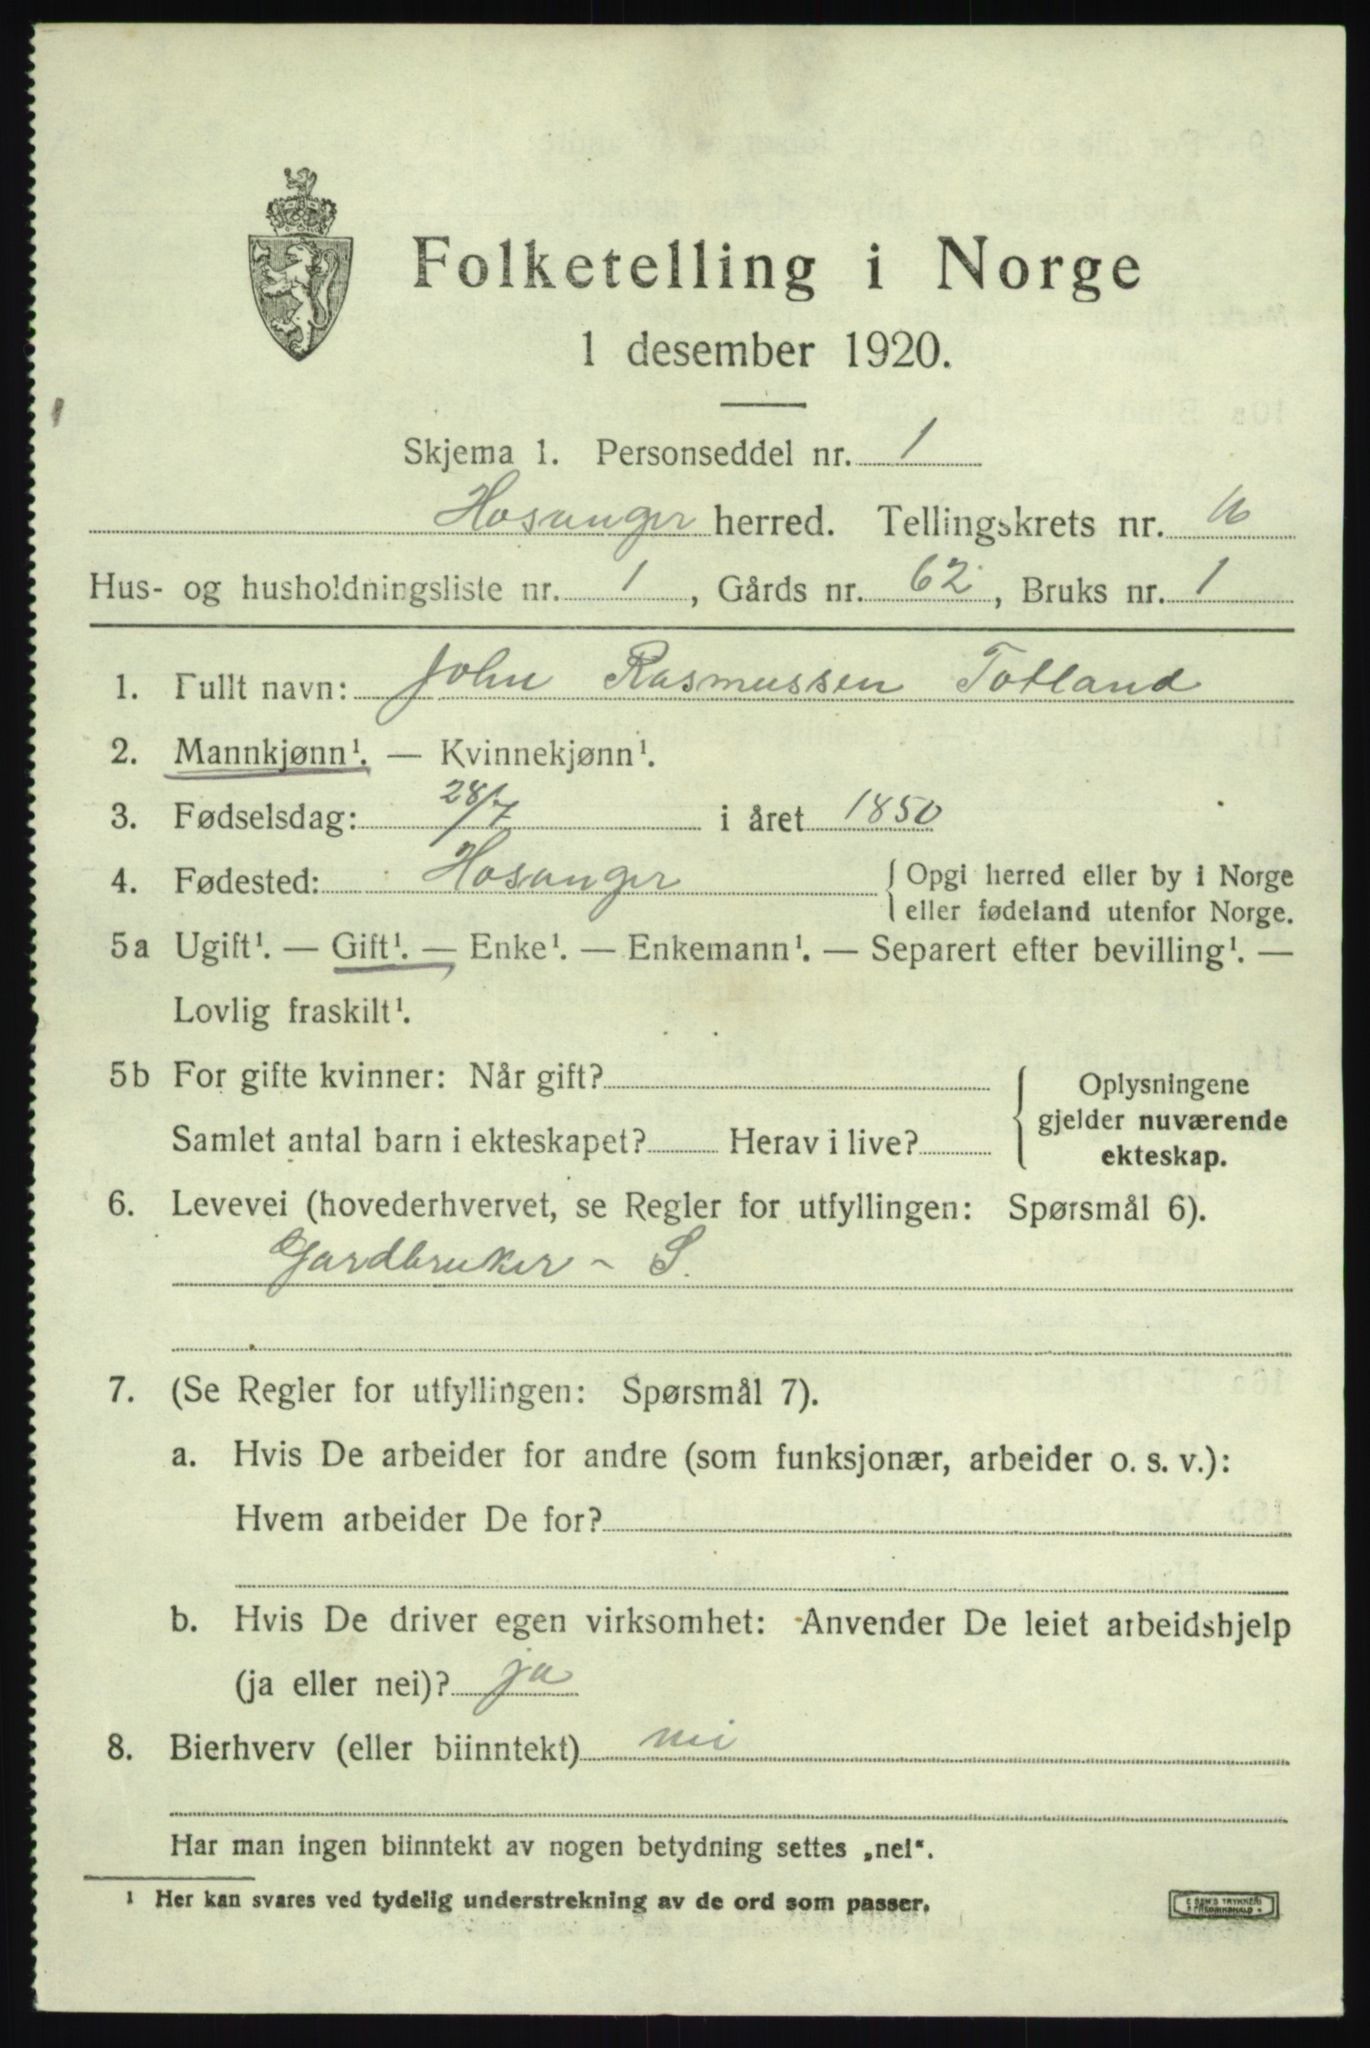 Folketelling i Norge
1 desember 1920.
Skjema 1. Personseddel nr. 1
Hosanger herred. Tellingskrets nr.
Hus- og husholdningsliste nr. 1, Gårds nr. 62, Bruks nr. 1
1. Fullt navn: John Rasmussen Totland
2. Mannkjønn¹. — Kvinnekjønn¹.
3. Fødselsdag: 28/7 i året 1850
4. Fødested: Hosanger { Opgi herred eller by i Norge
eller fødeland utenfor Norge.
5a Ugift¹. — Gift¹. — Enke¹. — Enkemann¹. — Separert efter bevilling¹. —
Lovlig fraskilt¹.
5b For gifte kvinner: Når gift?
Samlet antal barn i ekteskapet? Herav i live?
Oplysningene
gjelder nuværende
ekteskap.
6. Levevei (hovederhvervet, se Regler for utfyllingen: Spørsmål 6).
Gardbruker - S.
7. (Se Regler for utfyllingen: Spørsmål 7).
a. Hvis De arbeider for andre (som funksjonær, arbeider o. s. v.):
Hvem arbeider De for?
b. Hvis De driver egen virksomhet: Anvender De leiet arbeidshjelp
(ja eller nei)? ja
8. Bierhverv (eller biinntekt) nei
Har man ingen biinntekt av nogen betydning settes „nei“.
¹ Her kan svares ved tydelig understrekning av de ord som passer.